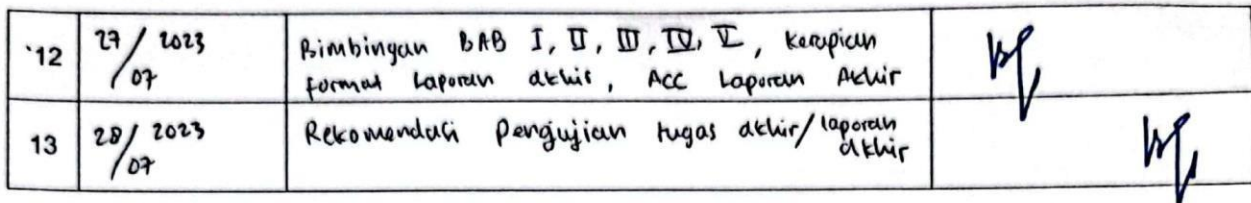 12 27/07 2023 Bimbingan BAB I, II, III, IV, V, Kerapian
format Laporan akhir, ACC Laporan Akhir
13 28/07 2023 Rekomendasi Pengujian tugas akhir/laporan
akhir